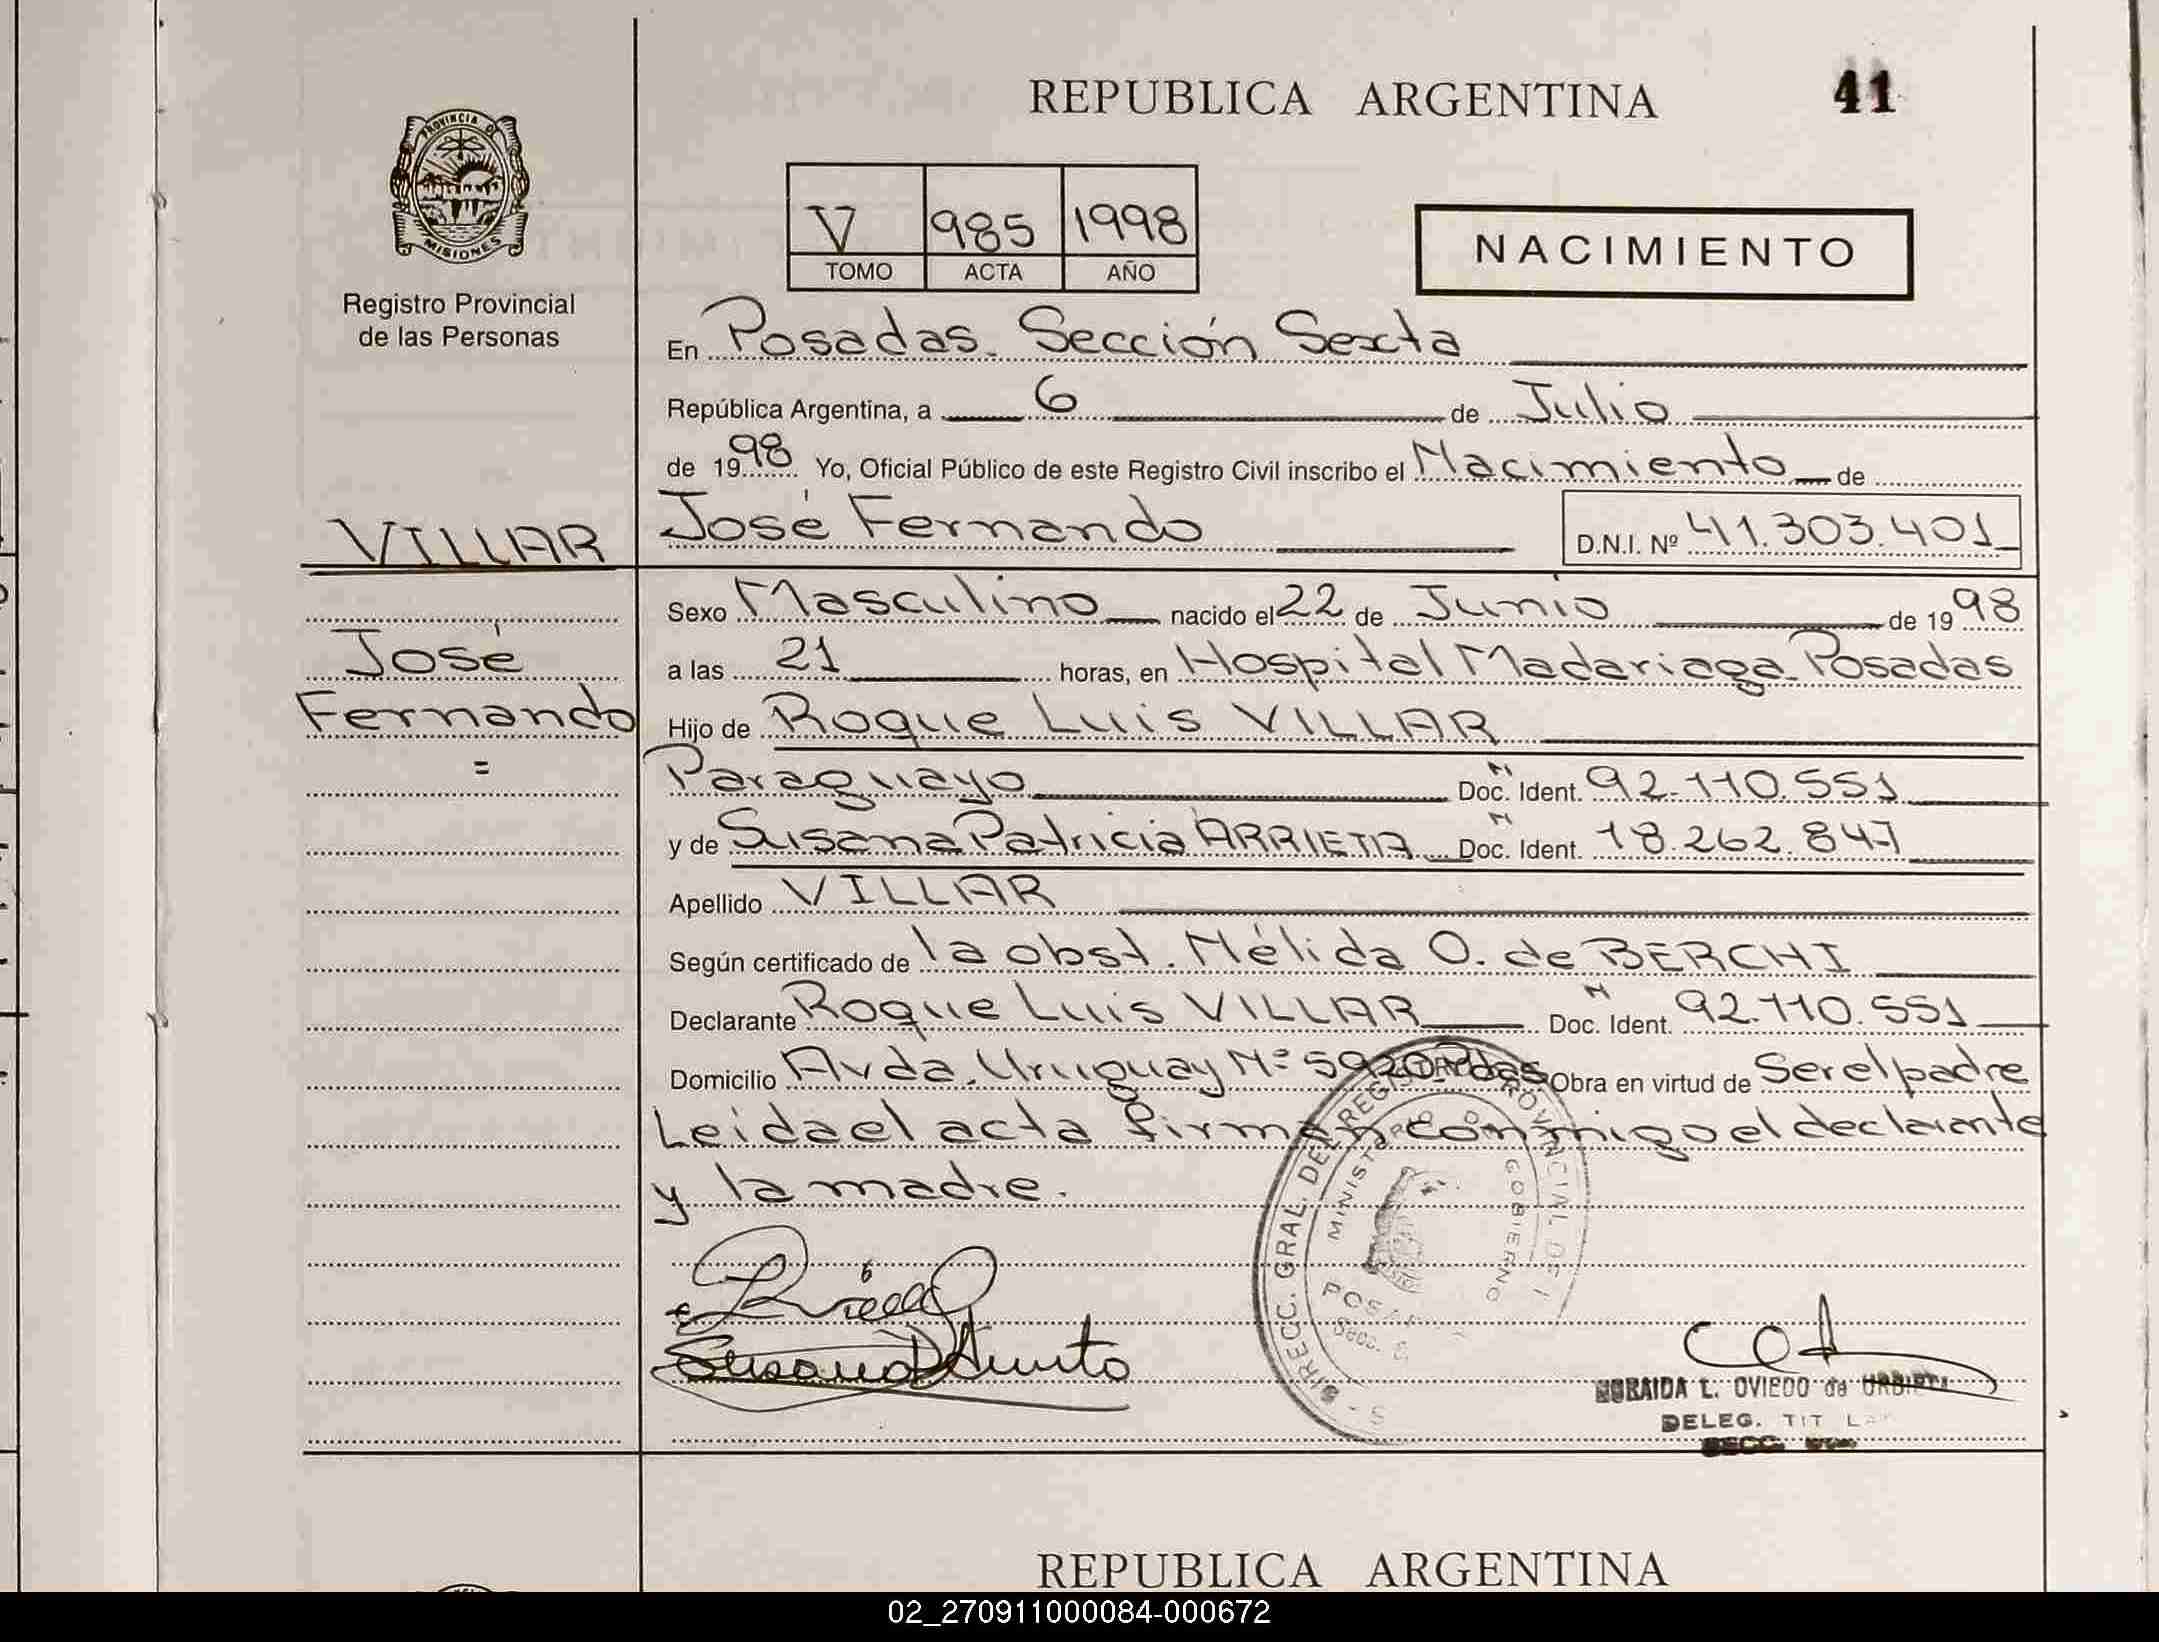 REPUBLICA ARGENTINA
41
PROVINCIA DE
MISIONES
Registro Provincial
de las Personas
V 985 1998
TOMO ACTA AÑO
NACIMIENTO
En Posadas. Sección Sexta
República Argentina, a 6 de Julio
de 1998 Yo, Oficial Público de este Registro Civil inscribo el Nacimiento de
VILLAR
José Fernando D.N.I. Nº 41.303.401
José
Fernando
=
Sexo Masculino nacido el 22 de Junio de 1998
a las 21 horas, en Hospital Madariaga-Posadas
Hijo de Roque Luis VILLAR
Paraguayo Doc. N Ident. 92.110.551
y de Susana Patricia ARRIETA Doc. N Ident. 18.262.847
Apellido VILLAR
Según certificado de la obst. Nélida O. de BERCHI
Declarante Roque Luis VILLAR Doc. N Ident. 92.110.551
Domicilio Avda. Uruguay Nº 5920 Pdas Obra en virtud de Ser el padre
Leida el acta firman conmigo el declarante
y la madre.
DIRECC. GRAL. DEL REGISTRO PROVINCIAL DE
MINISTERIO DE GOBIERNO
Susana
OVIEDO de URBIETA
DELEG. TIT
SECC.
REPUBLICA ARGENTINA
02_270911000084-000672